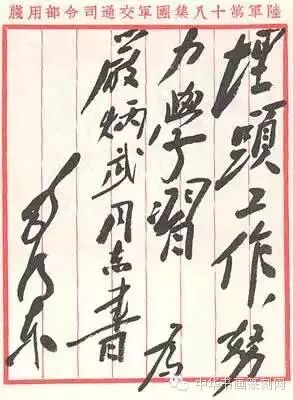 陸軍第十八集團軍交通司令部用牋
埋頭工作、努
力學習 為
嚴炳武同志書
毛泽东
中华书画篆刻网